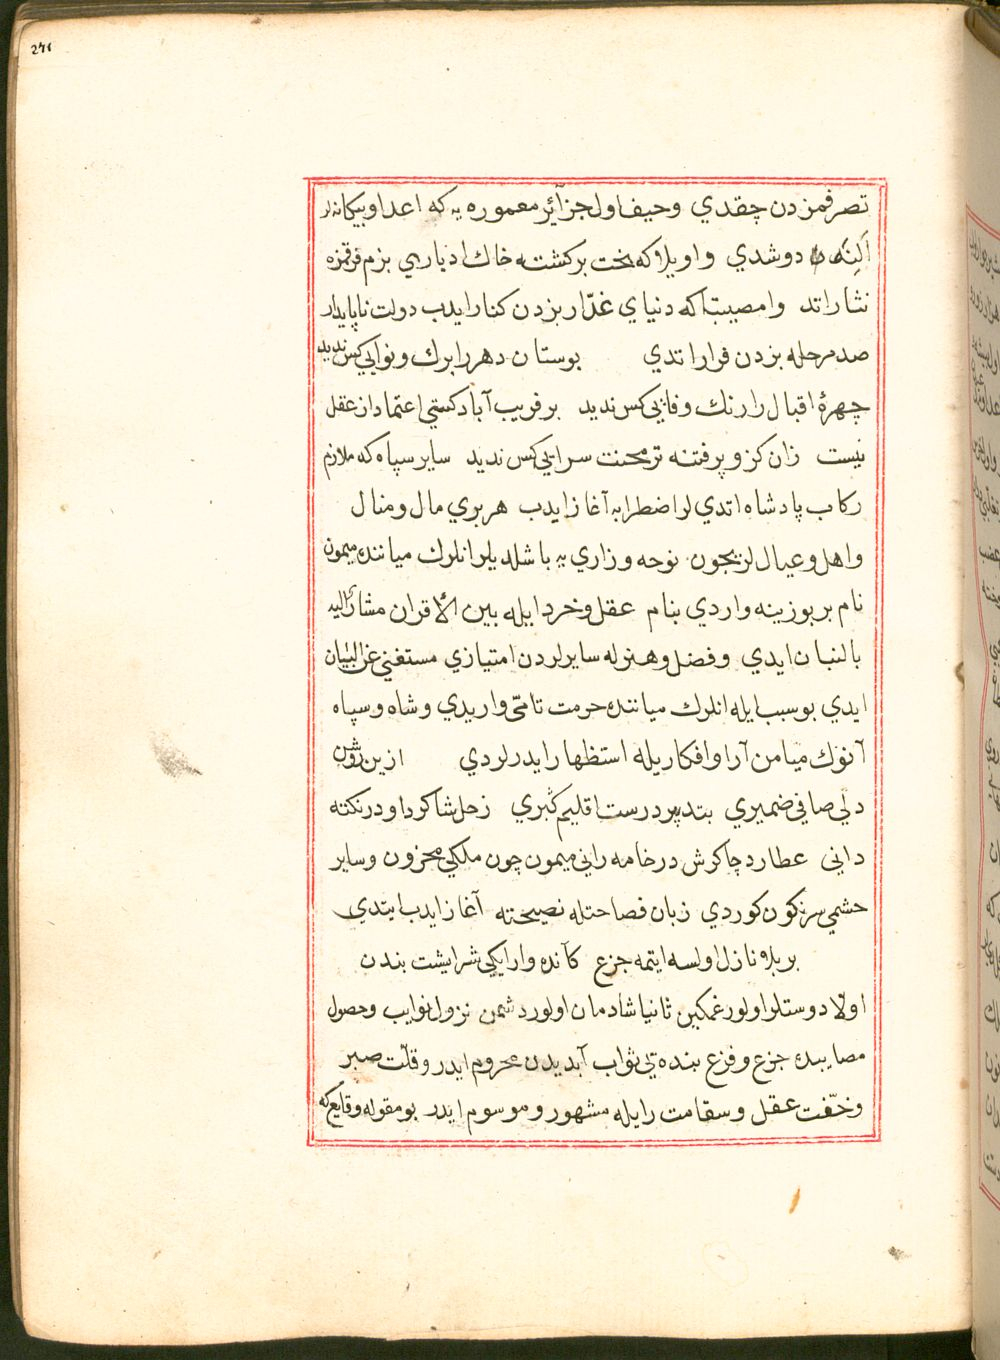 ٢٧١
تصرفمزدن چقدي وحيف اول جزآئر معموره يه كه اعدا وبيكانه لر
الينه دوشدي واويلا كه بخت بركشته خاك ادباري بزم فرقمزه
نثار اتد وامصيبتا كه دنياي غدّار بزدن كنار ايدب دولت ناپايدار
صد مرحله بزدن فرار اتدي بوستان دهر را برك ونوايي كس نديد
چهرهٔ اقبال را رنك وفايي كس نديد بر فريب آباد كستي اعتماد از عقل
نيست زان كز و پر فتنه تر محنت سرايي كس نديد ساير سپاه كه ملازم
ركاب پادشاه اتدي لر اضطرابه آغاز ايدب هر بري مال ومنال
واهل وعيال لريچون نوحه وزاري يه باشلديلر انلرك ميانننده ميمون
نام بر بوزينه واردي بنام عقل وخرد ايله بين الاقران مشار اليه
بالبنان ايدي وفضل وهنرله سايرلردن امتيازي مستغني عن البيان
ايدي بو سبب ايله انلرك مياننده حرمت تامّى واريدي وشاه وسپاه
آنوك ميامن آرا وافكاريله استظهار ايدرلردي ازين روشن
دلي صافي ضميري بتدبير درست اقليم كبري زحل شاكرد او در نكته
داني عطارد چاكرش در خامه راني ميمون چون ملكي محزون وساير
حشمي سرنكون كوردي زبان فصاحتله نصيحته آغاز ايدب ايتدي
بر بلا نازل اولسه ايتمه جزع كآنده وار ايكي شر ايشت بندن
اوّلا دوستلر اولور غمكين ثانيا شادمان اولور دشمن نزول نوايب وحصول
مصايبده جزع وفزع بنده يي ثواب آبديدن محروم ايدر وقلّت صبر
وخفّت عقل وسقامت رايله مشهور وموسوم ايدر بو مقوله وقايع كه